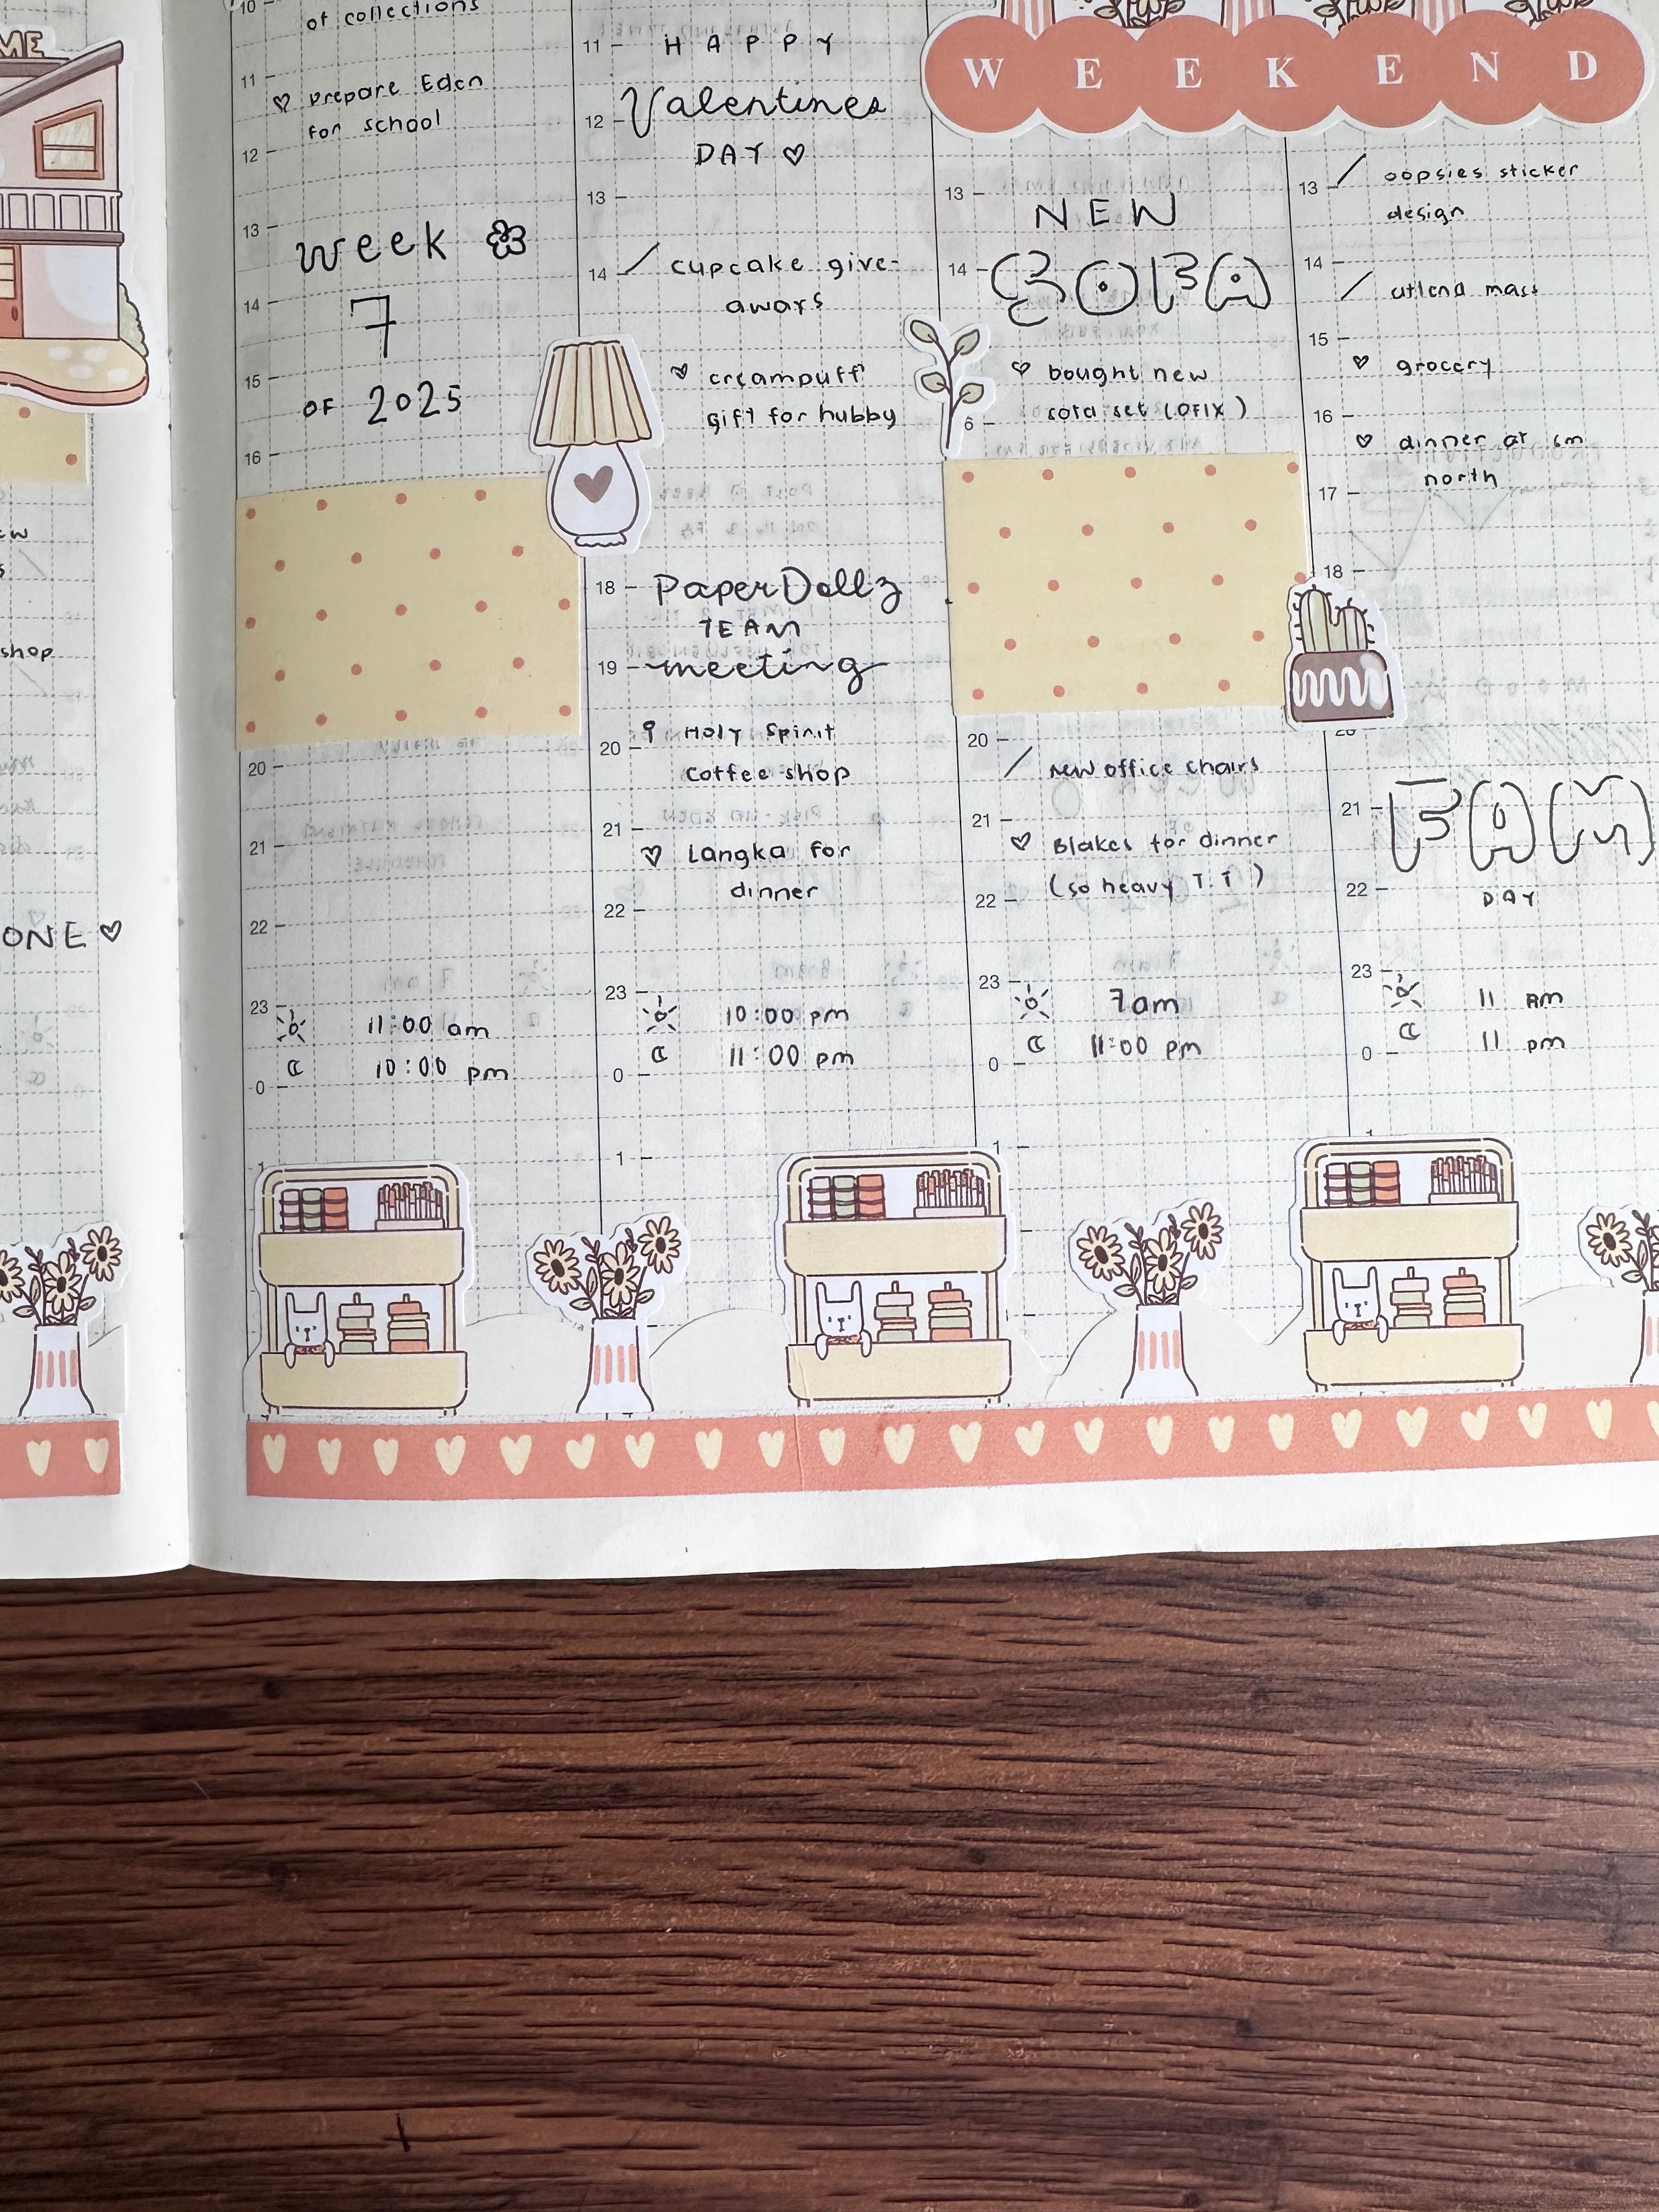 ME
ew
s
shop
ONE ♡
10
of collections
11
♡ Prepare Eden
for school
12
13
week
14
7
15
OF 2025
16
20
21
22
23
11:00 am
10:00 pm
0
1
11
HAPPY
12
Valentines
DAY ♡
13
14
/ cupcake give-
aways
♡ creampuff
gift for hubby
18
PaperDollz
TEAM
19
meeting
20
Holy Spirit
Coffee shop
21
♡ Langka for
dinner
22
23
10:00 pm
11:00 pm
0
1
WEEKEND
13
NEW
14
SOFA
♡ bought new
sofa set (OFIX)
6
20
/ new office chairs
21
♡ Blakes for dinner
(so heavy T.T)
22
23
7am
11:00 pm
0
1
13
/ oopsies sticker
design
14
/ attend mass
15
♡ grocery
16
♡ dinner at sm
north
17
18
20
21
FAM
22
DAY
23
11 AM
11 pm
0
1